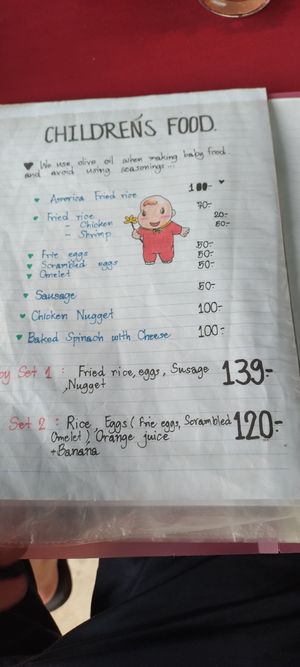 CHILDREN'S FOOD.
♥ We use olive oil when making baby food
and avoid using seasonings...
♥ America Fried rice 100-
♥ Fried rice 70-
- Chicken 20-
- Shrimp 50-
♥ Frie eggs 50-
♥ Scrambled eggs 50-
♥ Omelet 50-
♥ Sausage 50-
♥ Chicken Nugget 100-
♥ Baked Spinach with Cheese 100-
Set 1 : Fried rice, eggs, Susage 139-
,Nugget
Set 2 : Rice, Eggs ( Frie eggs, Scrambled 120-
Omelet ) Orange juice
+Banana